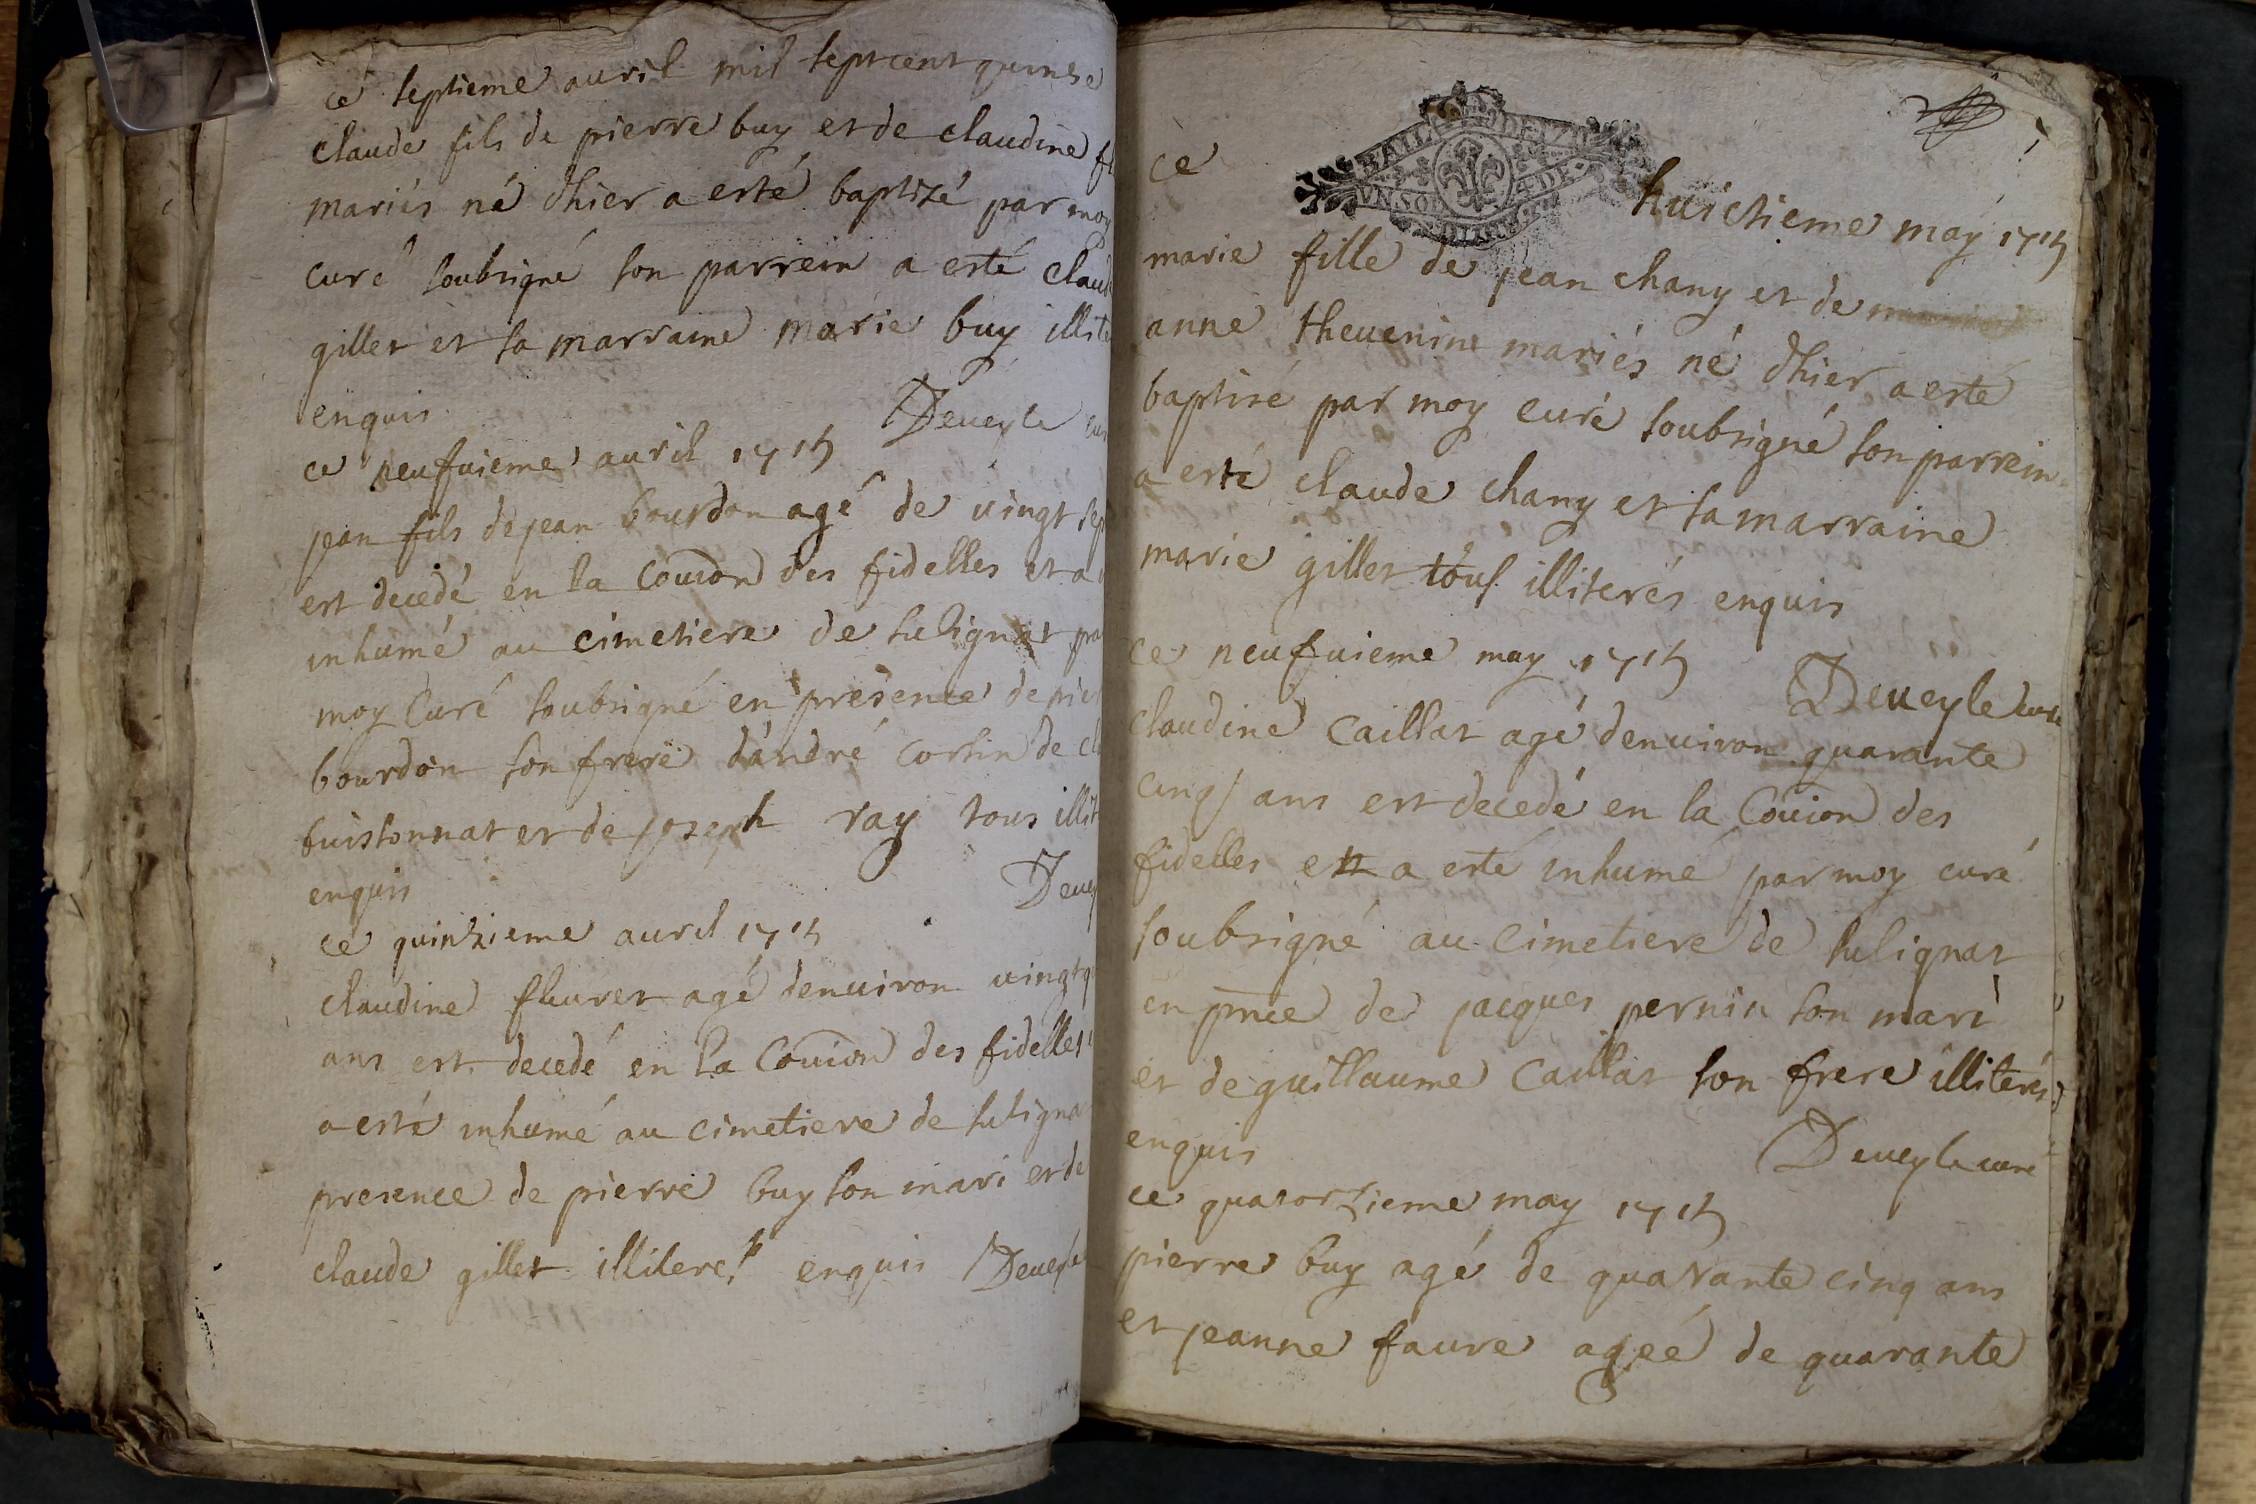 ce septieme auril mil septcent quinse
claude fils de pierre buy et de claudine
mariés né dhier a esté baptizé par moy
curé soubsigné son parrein a esté claude
gillet et sa marraine marie buy illite
enquis Deueyle cur
ce neufuieme auril 1715
jean fils de jean bourdon agé de uingt sep
est decedé en la Couion des fidelles et a
inhumé au cimetiere de sulignat par
moy Curé soubsigné en presence de pier
bourdon son frere d'andré cortin de cl
buissonnat et de joseph ray tous illit
enquis Deuey
ce quinzieme auril 1715
claudine fleuret agé denuiron uingt q
ans est decedé en la Couion des fidelles
a esté inhumé au cimetiere de suligna
presence de pierre buy son mari et de
claude gillet illiterés enquis Deueyle
ce huictieme may 1715
BAIL DE
VN SOL 4 DE
marie fille de jean chany et de
anne theuenin mariés né dhier a esté
baptisé par moy curé soubsigné son parrein
a esté claude chany et sa marraine
marie gillet tous illiterés enquis
ce neufuieme may 1715 Deueyle curé
claudine Caillat agé denuiron quarante
cinq ans est decedé en la Couion des
fidelles et a esté inhumé par moy curé
soubsigné au cimetiere de sulignat
en pnce de jacques pernin son mari
et de guillaume Caillat son frere illiterés
enquis Deueyle curé
ce quatorzieme may 1715
pierre buy agé de quarante cinq ans
et jeanne faure agée de quarante